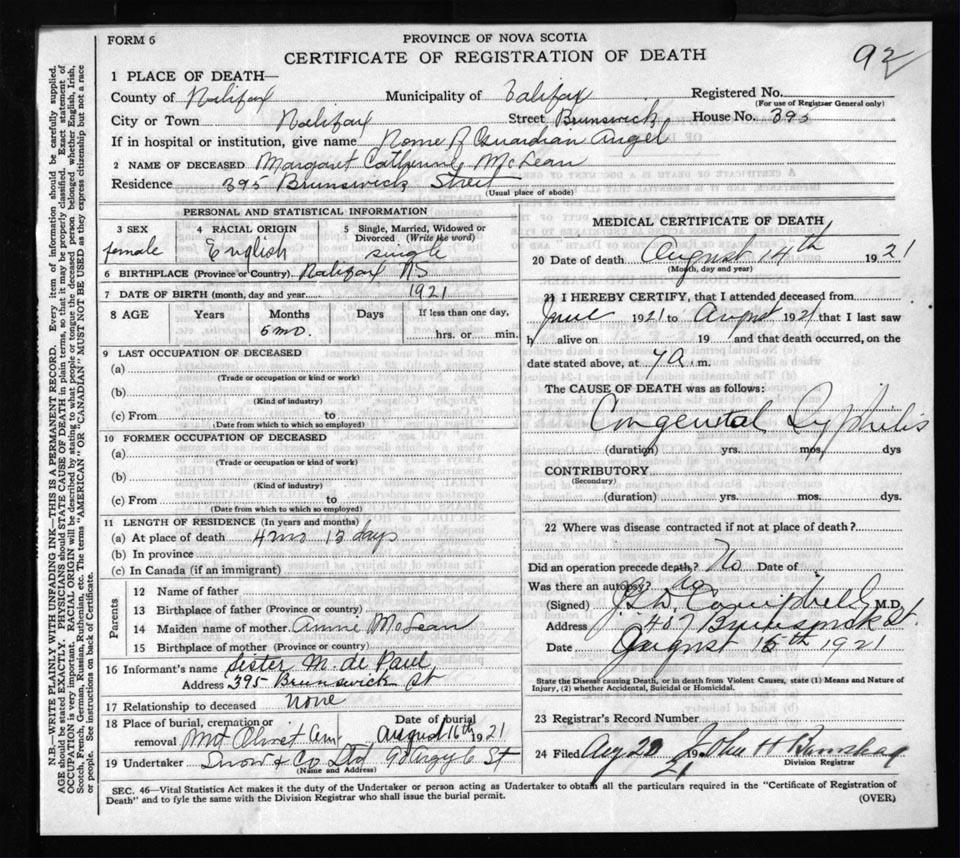 FORM 6
PROVINCE OF NOVA SCOTIA
CERTIFICATE OF REGISTRATION OF DEATH
92
1 PLACE OF DEATH—
County of Halifax Municipality of Halifax Registered No.
(For use of Registrar General only)
City or Town Halifax Street Brunswick House No. 395
If in hospital or institution, give name Home of Guardian Angel
2 NAME OF DECEASED Margaret Catherine McLean
Residence 395 Brunswick Street
(Usual place of abode)
PERSONAL AND STATISTICAL INFORMATION
3 SEX 4 RACIAL ORIGIN 5 Single, Married, Widowed or Divorced (Write the word)
female English single
6 BIRTHPLACE (Province or Country). Halifax NS
7 DATE OF BIRTH (month, day and year) 1921
8 AGE Years Months Days If less than one day,
6 mo. hrs. or min.
9 LAST OCCUPATION OF DECEASED
(a)
(Trade or occupation or kind or work)
(b)
(Kind of industry)
(c) From to
(Date from which to which so employed)
10 FORMER OCCUPATION OF DECEASED
(a)
(Trade or occupation or kind of work)
(b)
(Kind of industry)
(c) From to
(Date from which to which so employed)
11 LENGTH OF RESIDENCE (In years and months)
(a) At place of death 4 mo 13 days
(b) In province
(c) In Canada (if an immigrant)
Parents
12 Name of father
13 Birthplace of father (Province or country)
14 Maiden name of mother. Annie McLean
15 Birthplace of mother (Province or country)
16 Informant's name Sister M. de Paul
Address 395 Brunswick St
17 Relationship to deceased none
18 Place of burial, cremation or removal Mt Olivet Cem
Date of burial August 16th 1921
19 Undertaker Snow & Co Ltd 90 St
(Name and Address)
MEDICAL CERTIFICATE OF DEATH
20 Date of death August 14th 1921
(Month, day and year)
21 I HEREBY CERTIFY, that I attended deceased from
June 1921 to August 1921 that I last saw
h alive on 19 and that death occurred, on the
date stated above, at 7 a. m.
The CAUSE OF DEATH was as follows:
Congenital Syphilis
(duration) yrs. mos. dys
CONTRIBUTORY
(Secondary)
(duration) yrs. mos. dys.
22 Where was disease contracted if not at place of death?
Did an operation precede death? No Date of
Was there an autopsy? No
(Signed) Campbell M.D.
Address 407 Brunswick St.
Date August 15th 1921
State the Disease causing Death, or in death from Violent Causes, state (1) Means and Nature of
Injury, (2) whether Accidental, Suicidal or Homicidal.
23 Registrar's Record Number
24 Filed Aug 20 1921 John H
Division Registrar
SEC. 46—Vital Statistics Act makes it the duty of the Undertaker or person acting as Undertaker to obtain all the particulars required in the "Certificate of Registration of
Death" and to fyle the same with the Division Registrar who shall issue the burial permit.
(OVER)
N.B.—WRITE PLAINLY WITH UNFADING INK—THIS IS A PERMANENT RECORD. Every item of information should be carefully supplied.
AGE should be stated EXACTLY. PHYSICIANS should STATE CAUSE OF DEATH in plain terms, so that it may be properly classified. Exact statement of
OCCUPATION is very important. RACIAL ORIGIN will be described by stating to what people or tongue the deceased person belonged whether English, Irish,
Scotch, French, German, Russian, Ruthenian, etc. The terms "AMERICAN" OR "CANADIAN" MUST NOT BE USED as they express citizenship but not a race
or people. See instructions on back of Certificate.